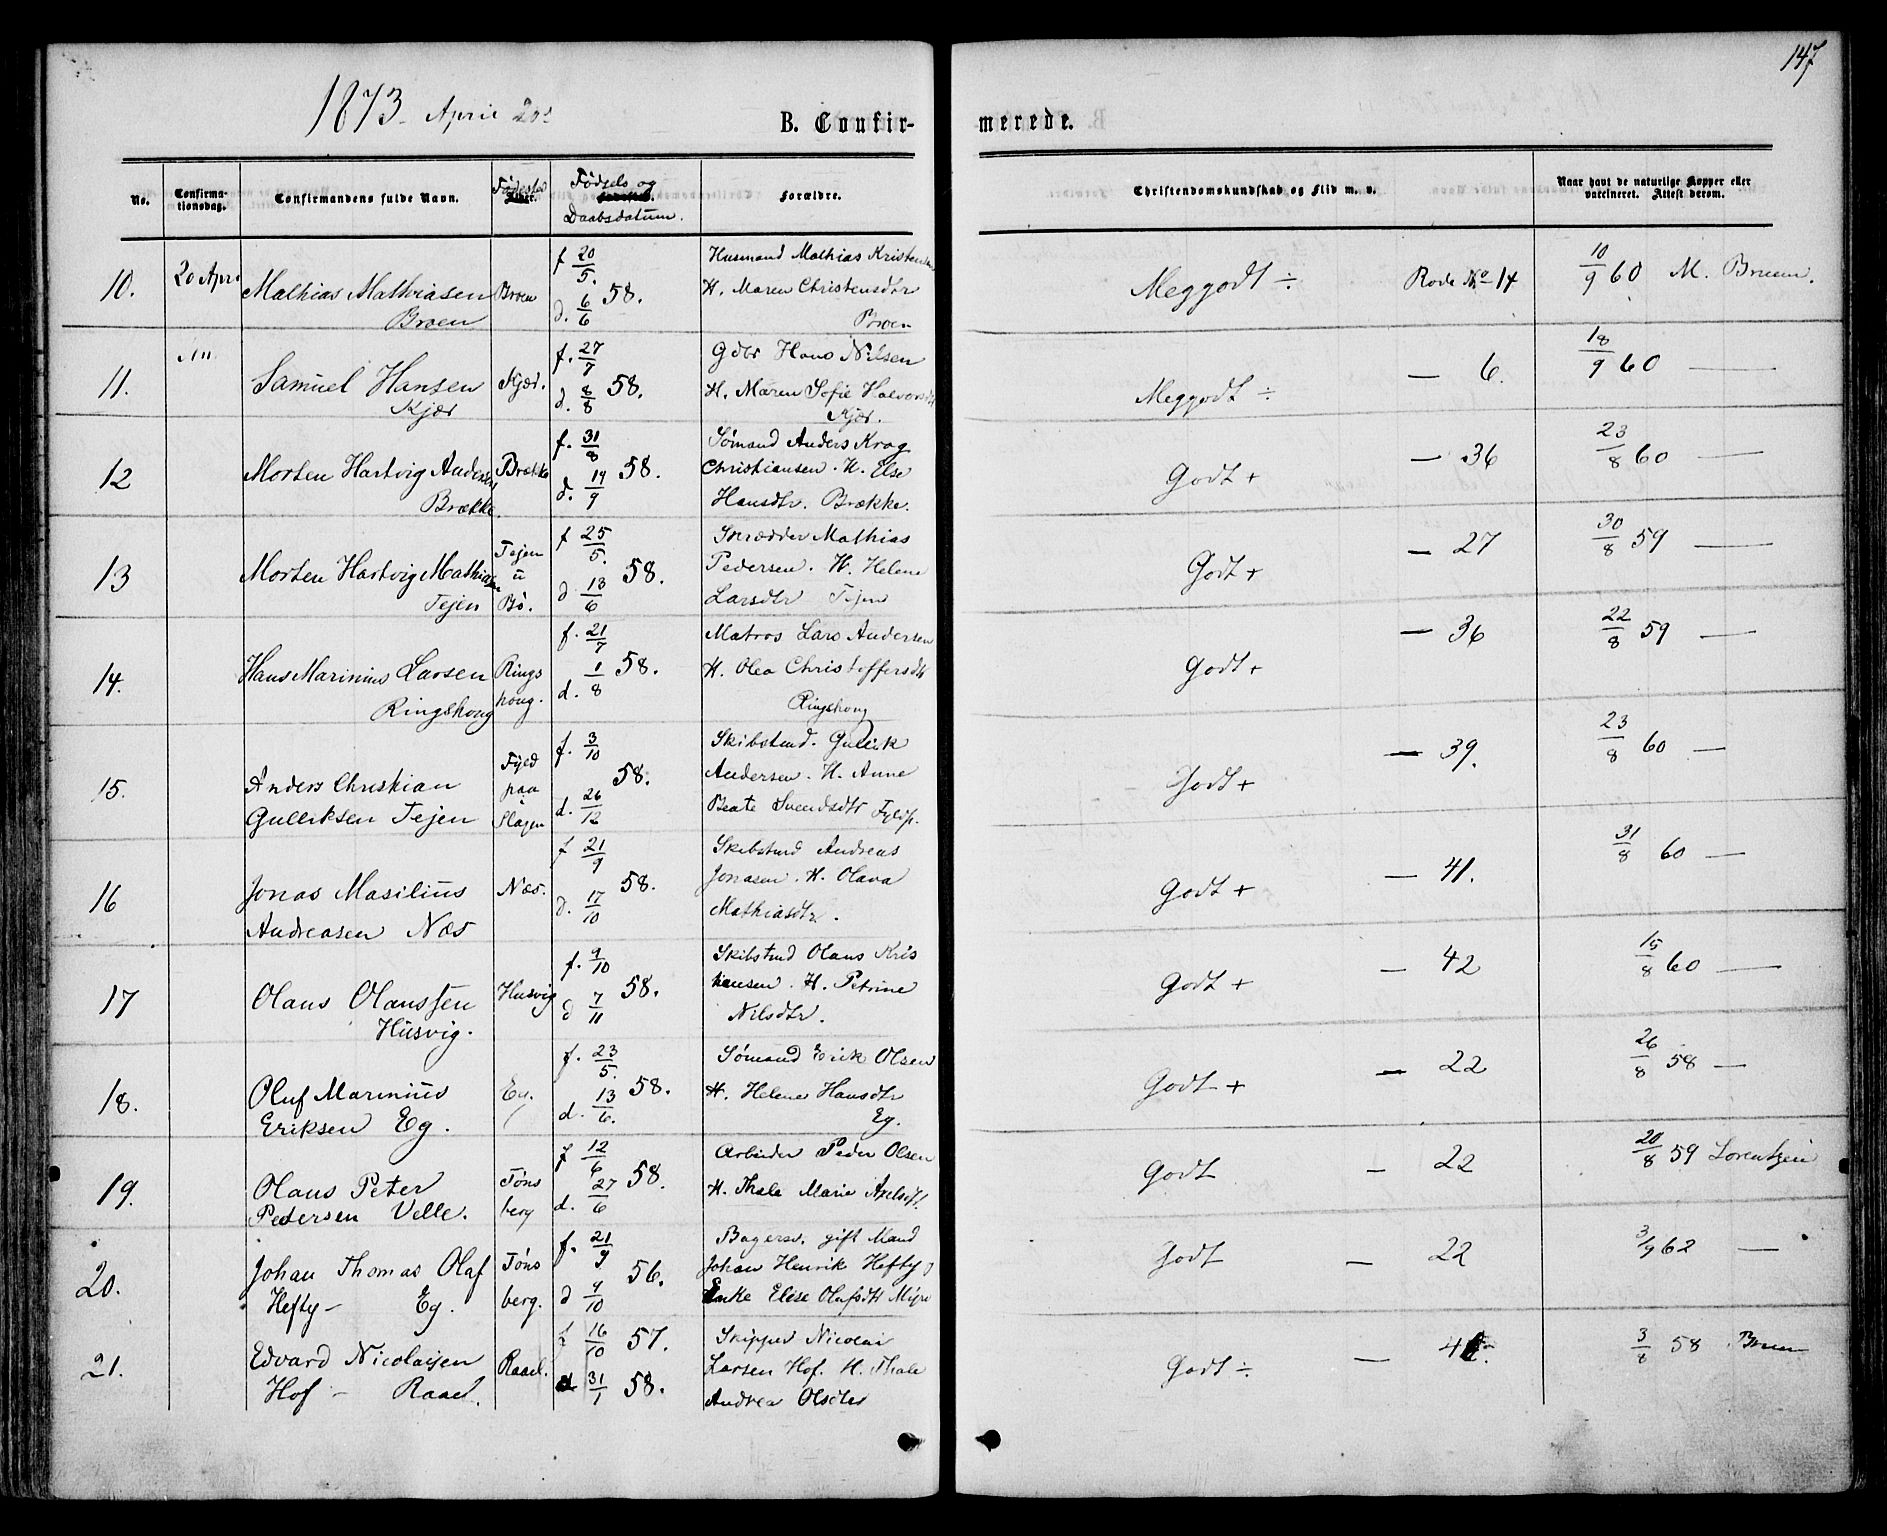 147
1873 April 20de
B. Confirmerede.
No. | Confirmationsdag. | Confirmandens fulde Navn. | Fødested | Fødsels og Daabsdatum. | Forældre. | Christendomskundskab og Flid m. v. | Naar havt de naturlige Kopper eller vaccineret. Attest derom.
10. | 20 April | Mathias Mathiasen | Broen | f 20/5. | Husmand Mathias Kristensen
Broen | d. 6/6 58. | H. Maren Christensdtr | Meggodt ÷ | Rode No 14 | 10/9 60 M. Bruun.
Broen
11. | Samuel Hansen | Kjær. | f. 27/7 | Gdbr Hans Nilsen
Kjær | d. 8/8 58. | H. Maren Sofie Halvorsdtr | Meggodt ÷ | — 6. | 18/9 60 —
Kjær.
12 | Morten Hartvig Andersen | Brække | f. 31/8 | Sømand Anders Krog
Brække. | d. 14/9 58. | Christiansen. H. Else | Godt + | — 36 | 23/8 60 —
Hansdtr. Brække.
13 | Morten Hartvig Mathiasen | Tejen u Bø. | f 25/5. | Skrædder Mathias
Tejen | d 13/6 58. | Pedersen. H. Helene | Godt + | — 27 | 30/8 59 —
Larsdtr Tejen
14. | Hans Marinius Larsen | Ringshoug. | f. 21/7 | Matros Lars Andersen
Ringshoug | d. 1/8 58. | H. Olea Christoffersdtr | Godt + | — 36 | 22/8 59 —
Ringshoug
15. | Anders Christian | Fyld paa Slagen | f. 3/10 | Skibstmd. Gullik
Gulliksen Tejen | d. 26/12 58. | Andersen. H. Anne | Godt + | — 39. | 23/8 60 —
Beate Svendsdtr Fyldp.
16 | Jonas Masilius | Næs. | f 21/9 | Skibstmd Andreas
Andreasen Næs | d. 17/10 58. | Jonasen. H. Olava | Godt + | — 41. | 31/8 60 —
Mathiasdtr.
17 | Olaus Olaussen | Husvig | f. 9/10 | Skibstmd Olaus Kris
Husvig. | d 7/11 58. | tiansen. H. Petrine | Godt + | — 42 | 15/8 60 —
Nilsdtr.
18. | Oluf Marinius | Eg. | f. 23/5. | Sømand Erik Olsen
Eriksen Eg. | d. 13/6. 58. | H. Helene Hansdtr | Godt + | — 22 | 26/8 58 —
Eg.
19. | Olaus Peter | Tønsberg | f 12/6 | Arbeider Peder Olsen
Pedersen Velle. | d. 27/6 58. | H. Thale Marie Axelsdtr. | Godt | — 22 | 20/8 59 Lorentzen
20. | Johan Thomas Olaf | Tønsberg. | f. 21/9 | Bagersv. gift Mand
Hefty – Eg. | d 9/10 56. | Johan Henrik Hefty o | Godt | — 22 | 3/9 62 —
Enke Elise Olafsdtr Myre
21. | Edvard Nicolaisen | Raael. | f 16/10 57. | Skipper Nicolai
Hof – Raael. | d 31/1 58. | Larsen Hof. H. Thale | Godt ÷ | — | 3/8 58. Bruun
Andrea Olsdtr